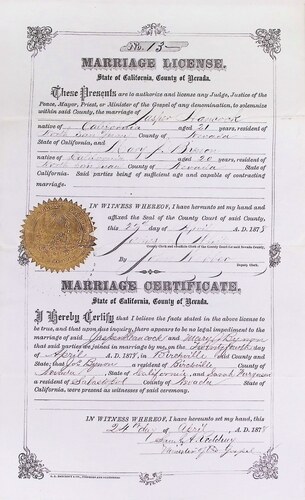 No. 13
MARRIAGE LICENSE.
State of California, County of Nevada.
These Presents are to authorize and license any Judge, Justice of the
Peace, Mayor, Priest, or Minister of the Gospel of any denomination, to solemnize
within said County, the marriage of Jasper
native of California aged 21 years, resident of
North San Juan County of Nevada
State of California, and
Mary J.
native of California aged 20 years, resident of
North San Juan County of Nevada
State of California. Said parties being of sufficient age and capable of contracting
marriage.
IN WITNESS WHEREOF, I have hereunto set my hand and
affixed the Seal of the County Court of said County,
this day of April A.D. 1878
County Clerk and ex-officio Clerk of the County Court in and for said Nevada County.
By
Deputy Clerk.
MARRIAGE CERTIFICATE.
State of California, County of Nevada.
I Hereby Certify that I believe the facts stated in the above license to
be true, and that upon due inquiry, there appears to be no legal impediment to the
marriage of said Jasper and Mary J.
that said parties were joined in marriage by me, on the day
of April A.D. 1878, in Birchville said County and
State; that a resident of Birchville
County of Nevada State of California, and Sarah
a resident of County of Nevada State of
California, were present as witnesses of said ceremony.
IN WITNESS WHEREOF, I have hereunto set my hand, this
24th day of April A.D. 1878
Minister of the Gospel